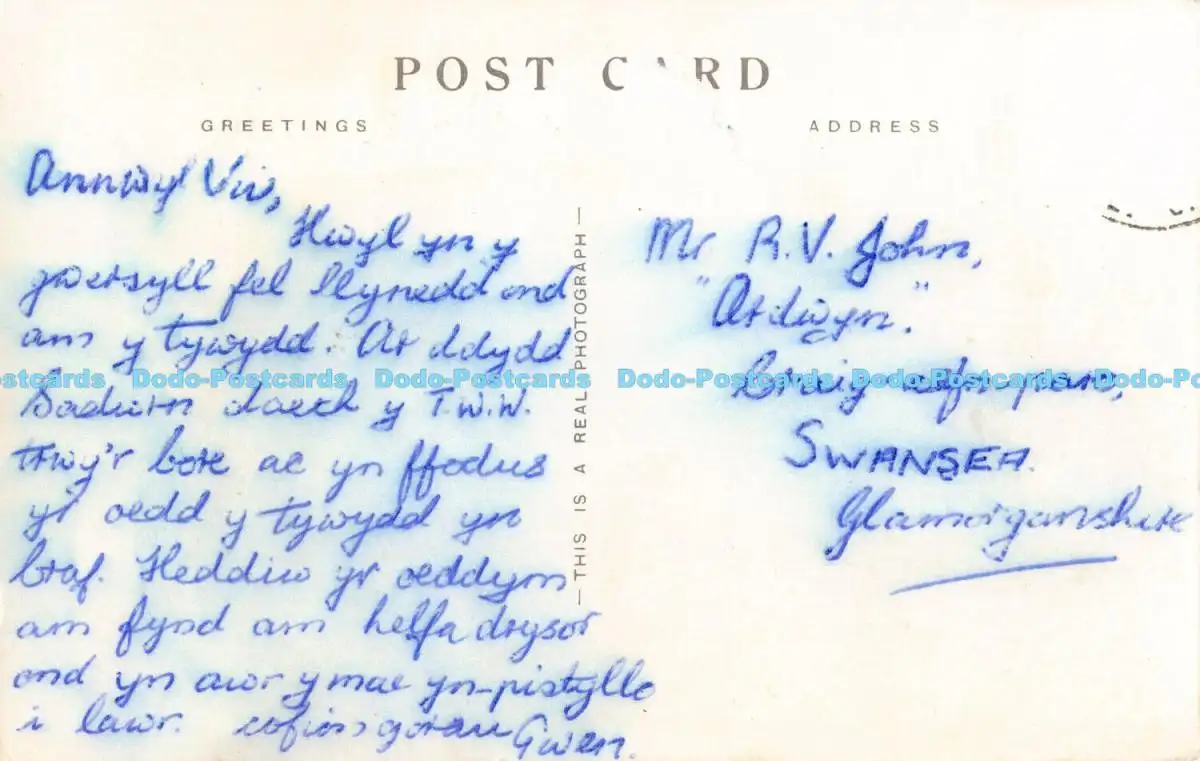 POST CARD
GREETINGS
ADDRESS
Annwyl Viv,
Hwyl yn y
gwersyll fel llynedd ond
am y tywydd. Ar ddydd
Sadwrn daeth y T.W.W.
trwy'r bore ac yn ffodus
yr oedd y tywydd yn
braf. Heddiw yr oeddym
am fynd am helfa drysor
ond yn awr y mae yn-pistyllo
i lawr. cofion gorau Gwen.
— THIS IS A REAL PHOTOGRAPH —
Mr R.V. John,
"Ardwyn."
SWANSEA.
Glamorganshire
Dodo-Postcards Dodo-Postcards Dodo-Postcards Dodo-Postcards Dodo-Postcards